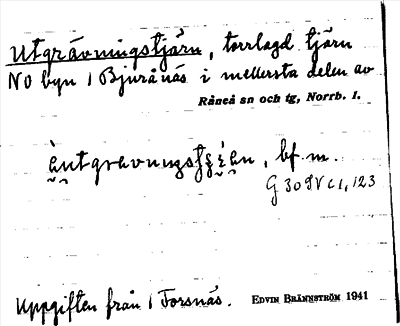 Utgrävningstjärn, torrlagd tjärn
NO byn 1 Bjurånäs i mellersta delen av
Råneå sn och tg, Norrb. l.
bf. m.
G 309V c 1, 123
Uppgiften från 1 Forsnäs. EDVIN BRÄNNSTRÖM 1941